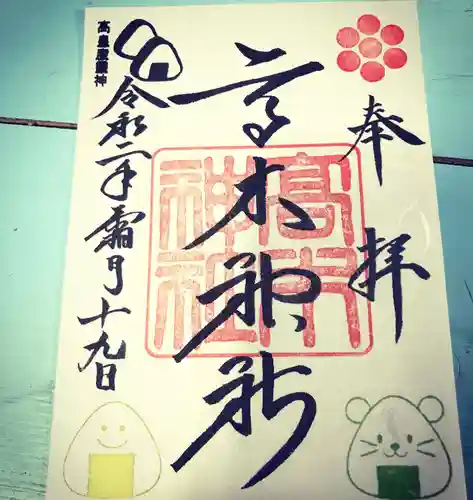 奉拝
高木神社
高木
神社
令和二年霜月十九日
高皇産靈神